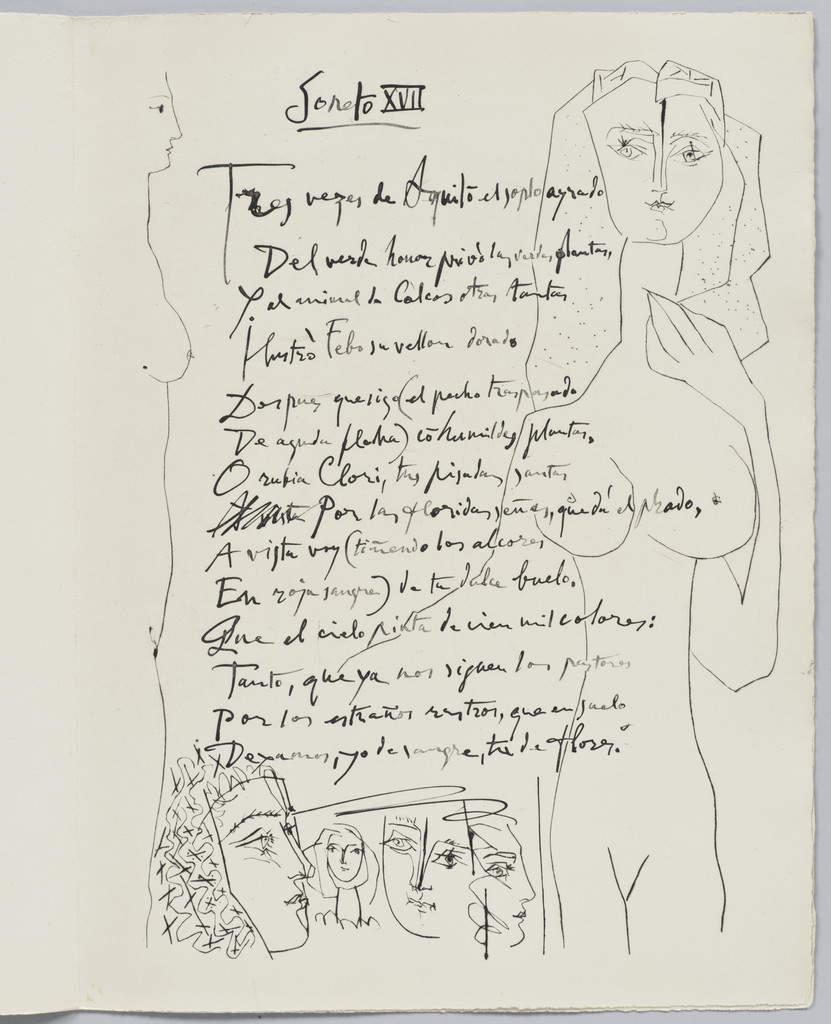 Soneto XVII
Tres vezes de Aquilō el soplo ayrado
Del verde honor privò las verdes plantas,
Y al animal de Colcos otras tantas
Ilustrò Febo su vellon dorado
Despues que sigo (el pecho traspasado
De aguda flecha) cō humildes plantas,
O rubia Clori, tus pisadas santas
Por las floridas señas, que dá el prado,
A vista voy (tiñendo los alcores
En roja sangre) de tu dulce buelo,
Que el cielo pinta de cien mil colores:
Tanto, que ya nos siguen los pastores
Por los estraños rastros, que en suelo
Dexamos, yo de sangre, tu de flores.